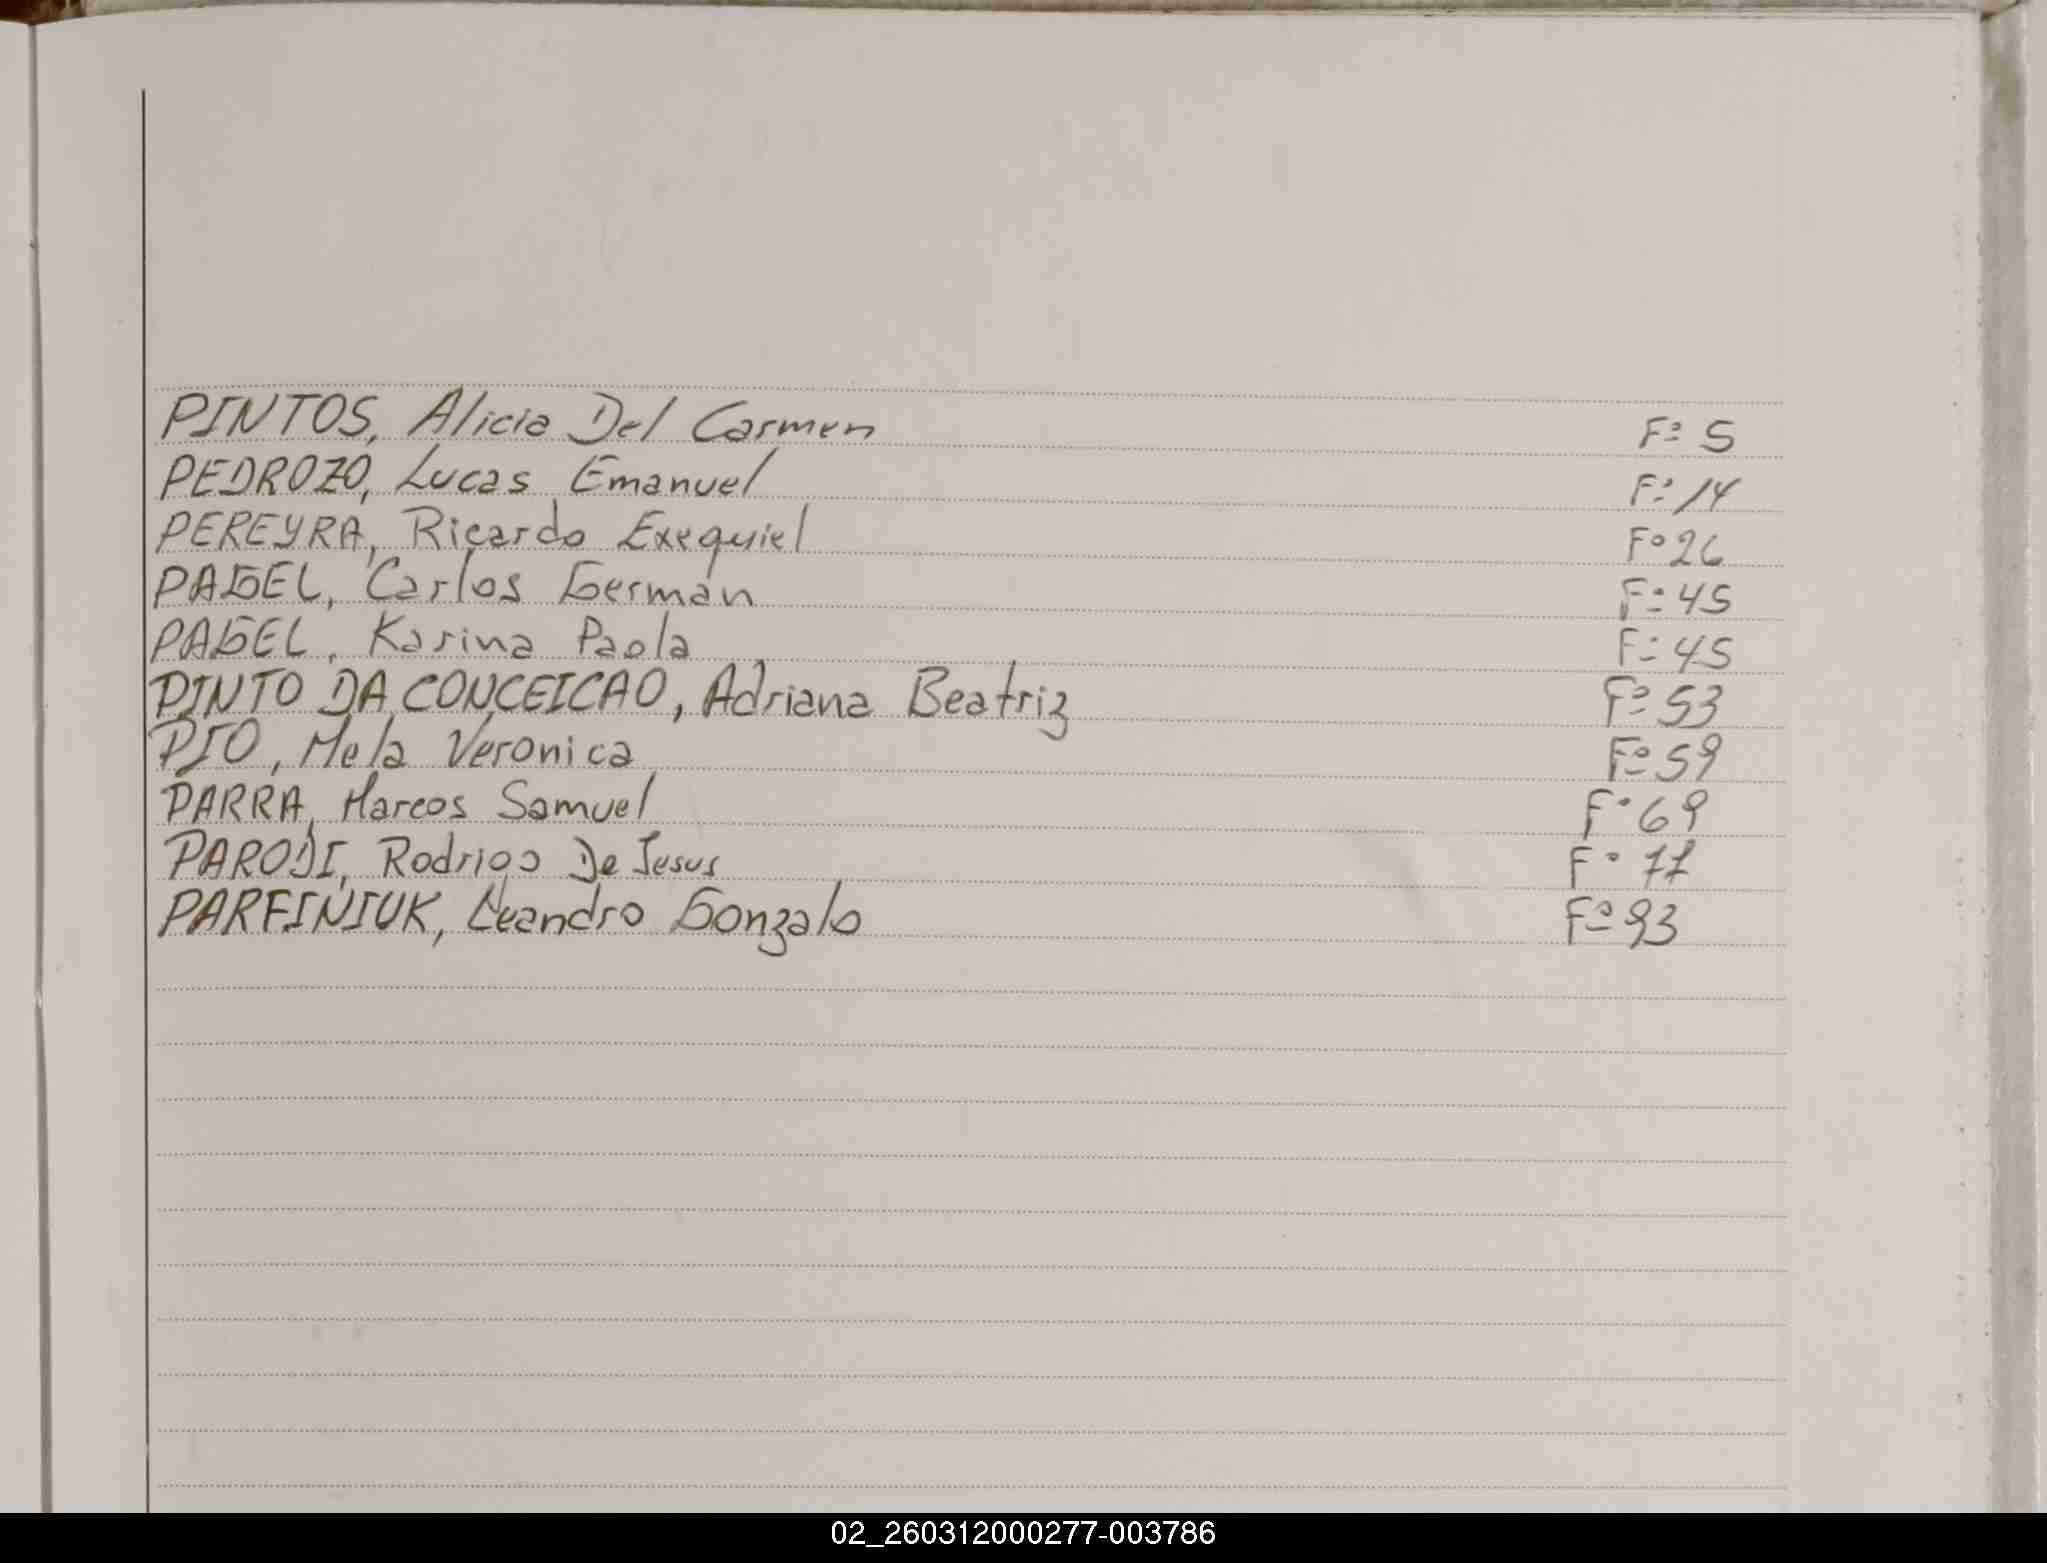 PINTOS, Alicia Del Carmen F° 5
PEDROZO, Lucas Emanuel F° 14
PEREYRA, Ricardo Exequiel F° 26
PAGEL, Carlos German F° 45
PAGEL, Karina Paola F° 45
PINTO DA CONCEICAO, Adriana Beatriz F° 53
PIO, Mela Veronica F° 59
PARRA, Marcos Samuel F° 69
PARODI, Rodrigo De Jesus F° 77
PARFINIUK, Leandro Gonzalo F° 93
02_260312000277-003786